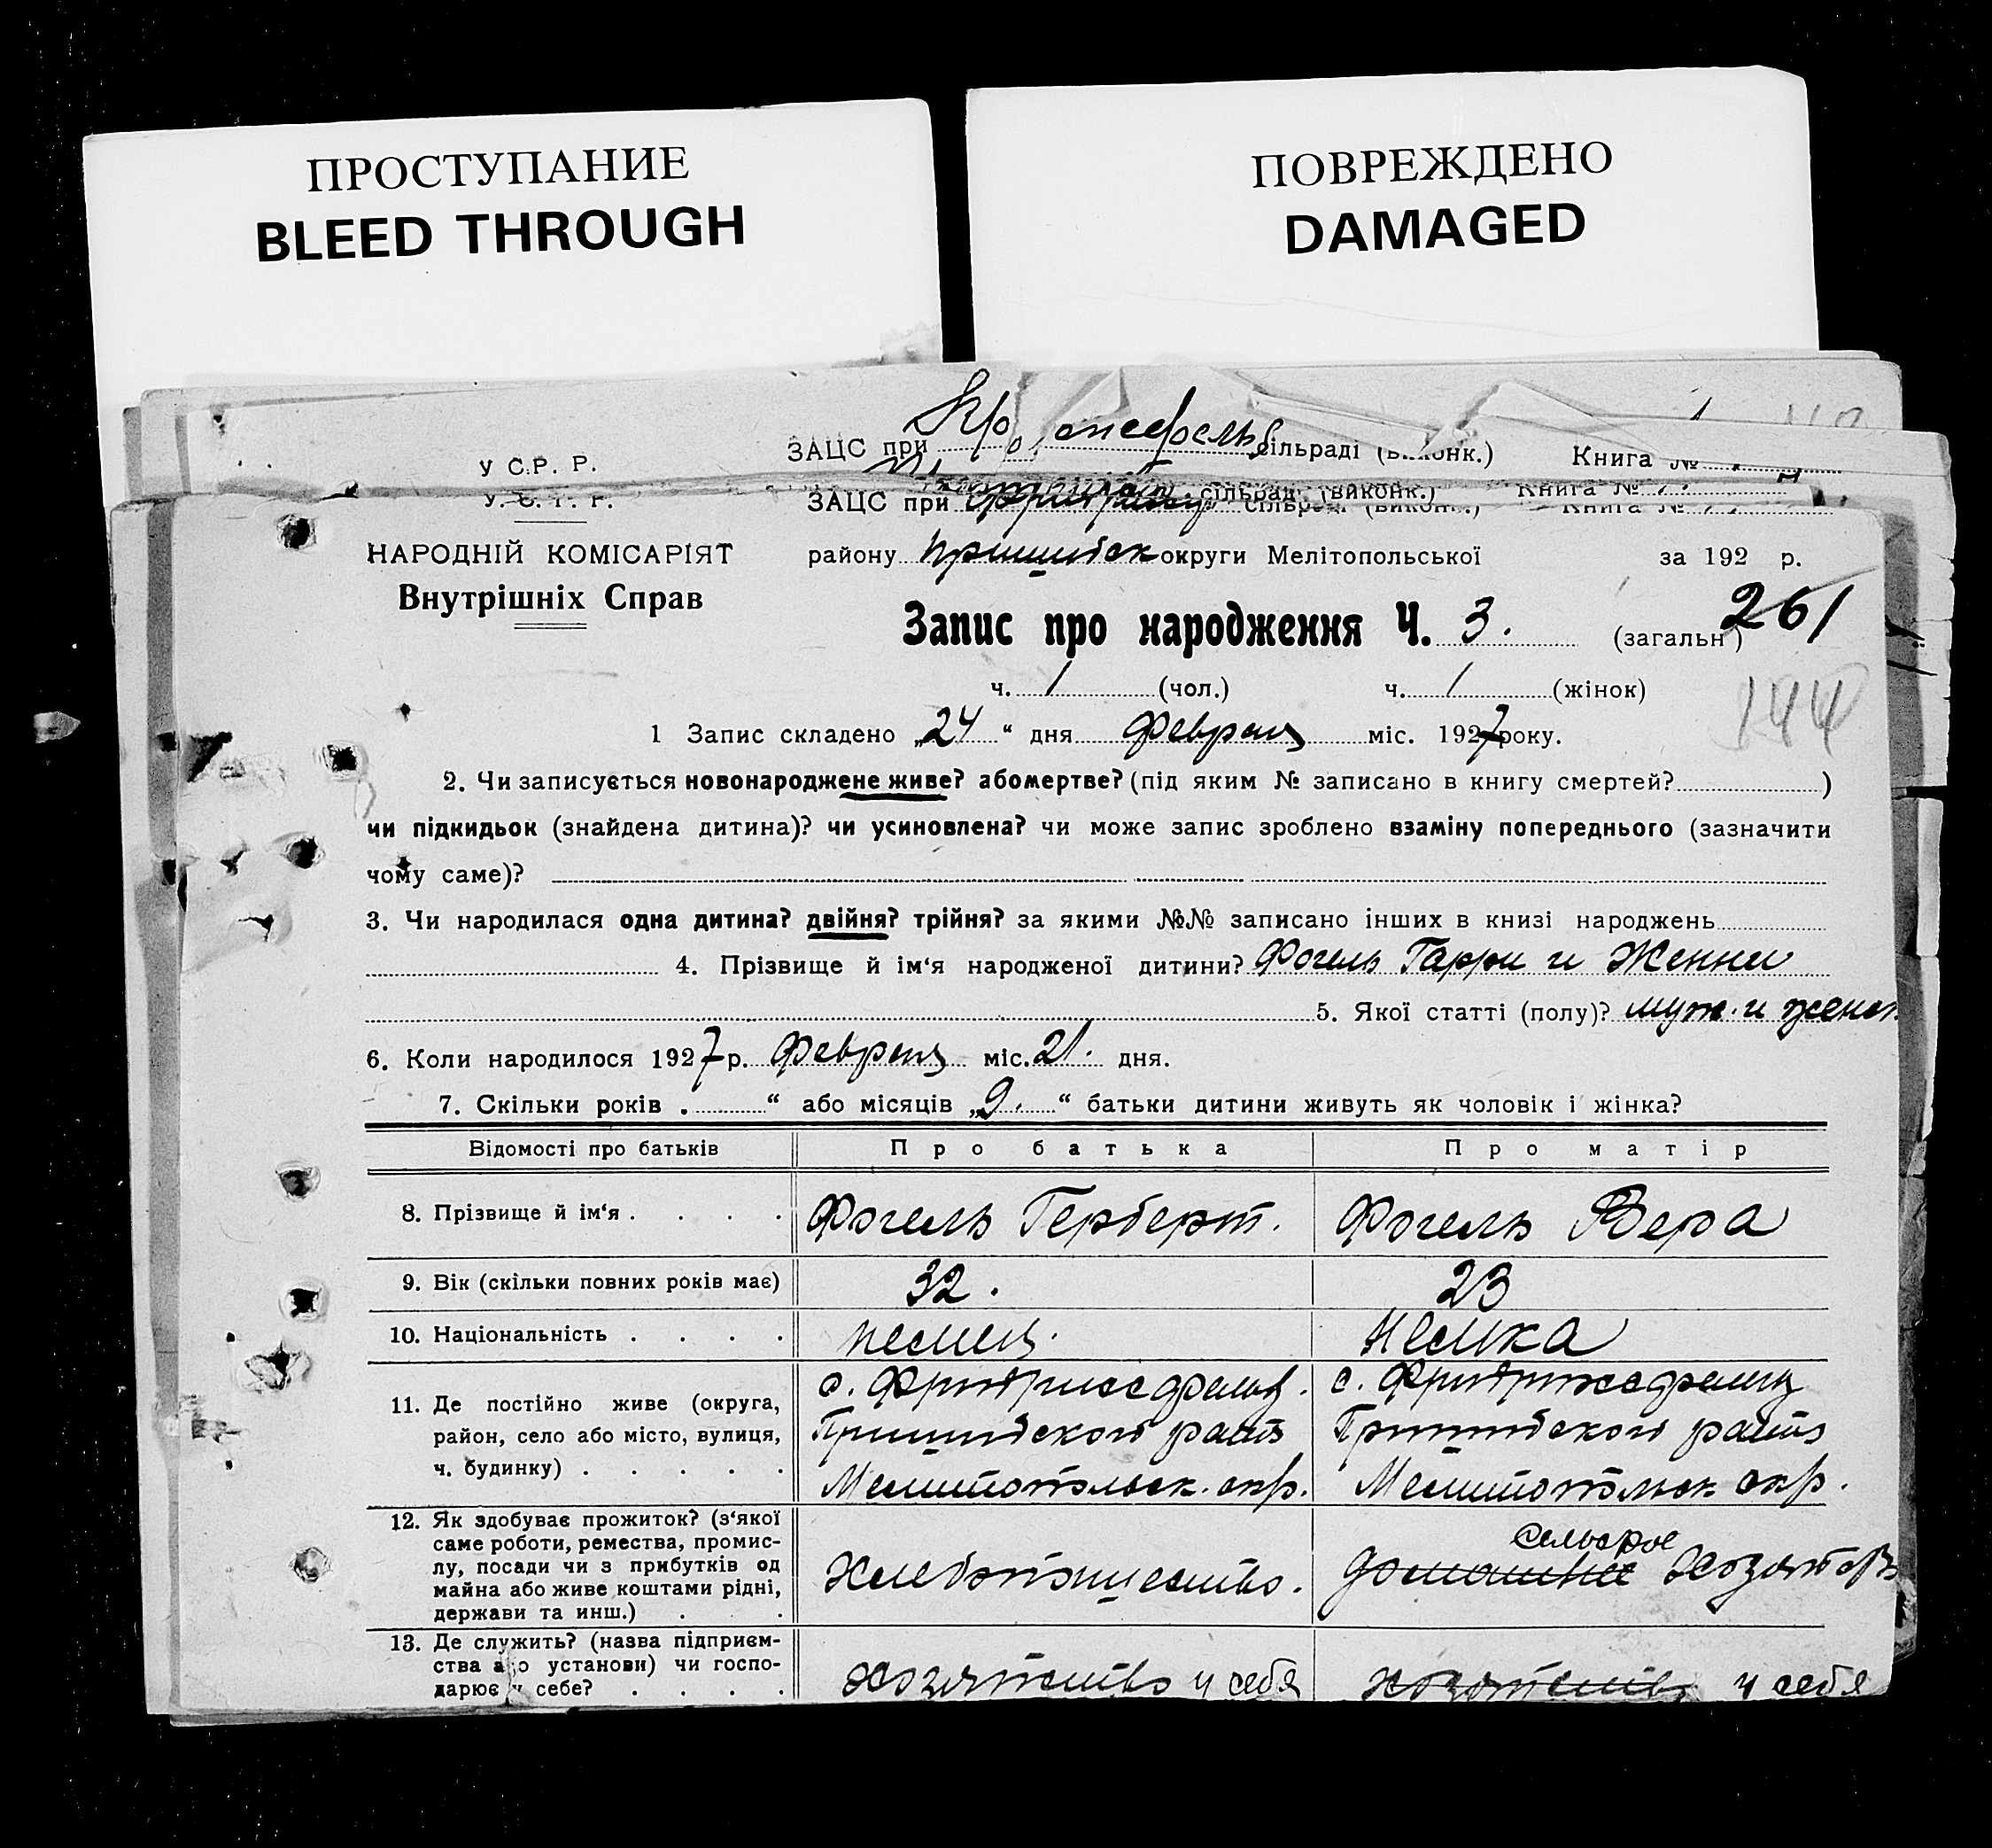 ПРОСТУПАНИЕ
BLEED THROUGH
ПОВРЕЖДЕНО
DAMAGED
У С.Р. Р. ЗАЦС при сільраді Книга №
У. С. Р. Р. ЗАЦС при Книга №
НАРОДНІЙ КОМІСАРІЯТ
Внутрішніх Справ
району Пришибск округи Мелітопольської за 192 р.
Запис про народження Ч. 3. (загальн) 261
ч. 1 (чол.) ч. 1 (жінок)
144
1 Запис складено „24“ дня февраля міс. 1927 року.
2. Чи записується новонароджене живе? абомертве? (під яким № записано в книгу смертей? )
чи підкидьок (знайдена дитина)? чи усиновлена? чи може запис зроблено взаміну попереднього (зазначити
чому саме)?
3. Чи народилася одна дитина? двійня? трійня? за якими №№ записано інших в книзі народжень
4. Прізвище й ім‘я народженої дитини? Фогель Гарри и Женни
5. Якої статті (полу)? муж. и женск.
6. Коли народилося 1927 р. февраля міс. 21. дня.
7. Скільки років . “ або місяців „9.“ батьки дитини живуть як чоловік і жінка?
Відомості про батьків Про батька Про матір
8. Прізвище й ім‘я . . . . Фогель Герберт. Фогель Вера
9. Вік (скільки повних років має) 32. 23
10. Національність . . . . немец. Немка
11. Де постійно живе (округа,
район, село або місто, вулиця,
ч. будинку) . . . . .
с. Фридрихсфельд.
Пришибского района
Мелитопольск. окр.
с. Фридрихсфельд
Пришибского района
Мелитопольск окр.
12. Як здобуває прожиток? (з‘якої
саме роботи, ремества, промис-
лу, посади чи з прибутків од
майна або живе коштами рідні,
держави та инш.) . .
Хлебопашество.
сельское
домашнее хозяйство
13. Де служить? (назва підприєм-
ства або установи) чи госпо-
дарює у себе? . . . .
хозяйство у себя
хозяйство у себя